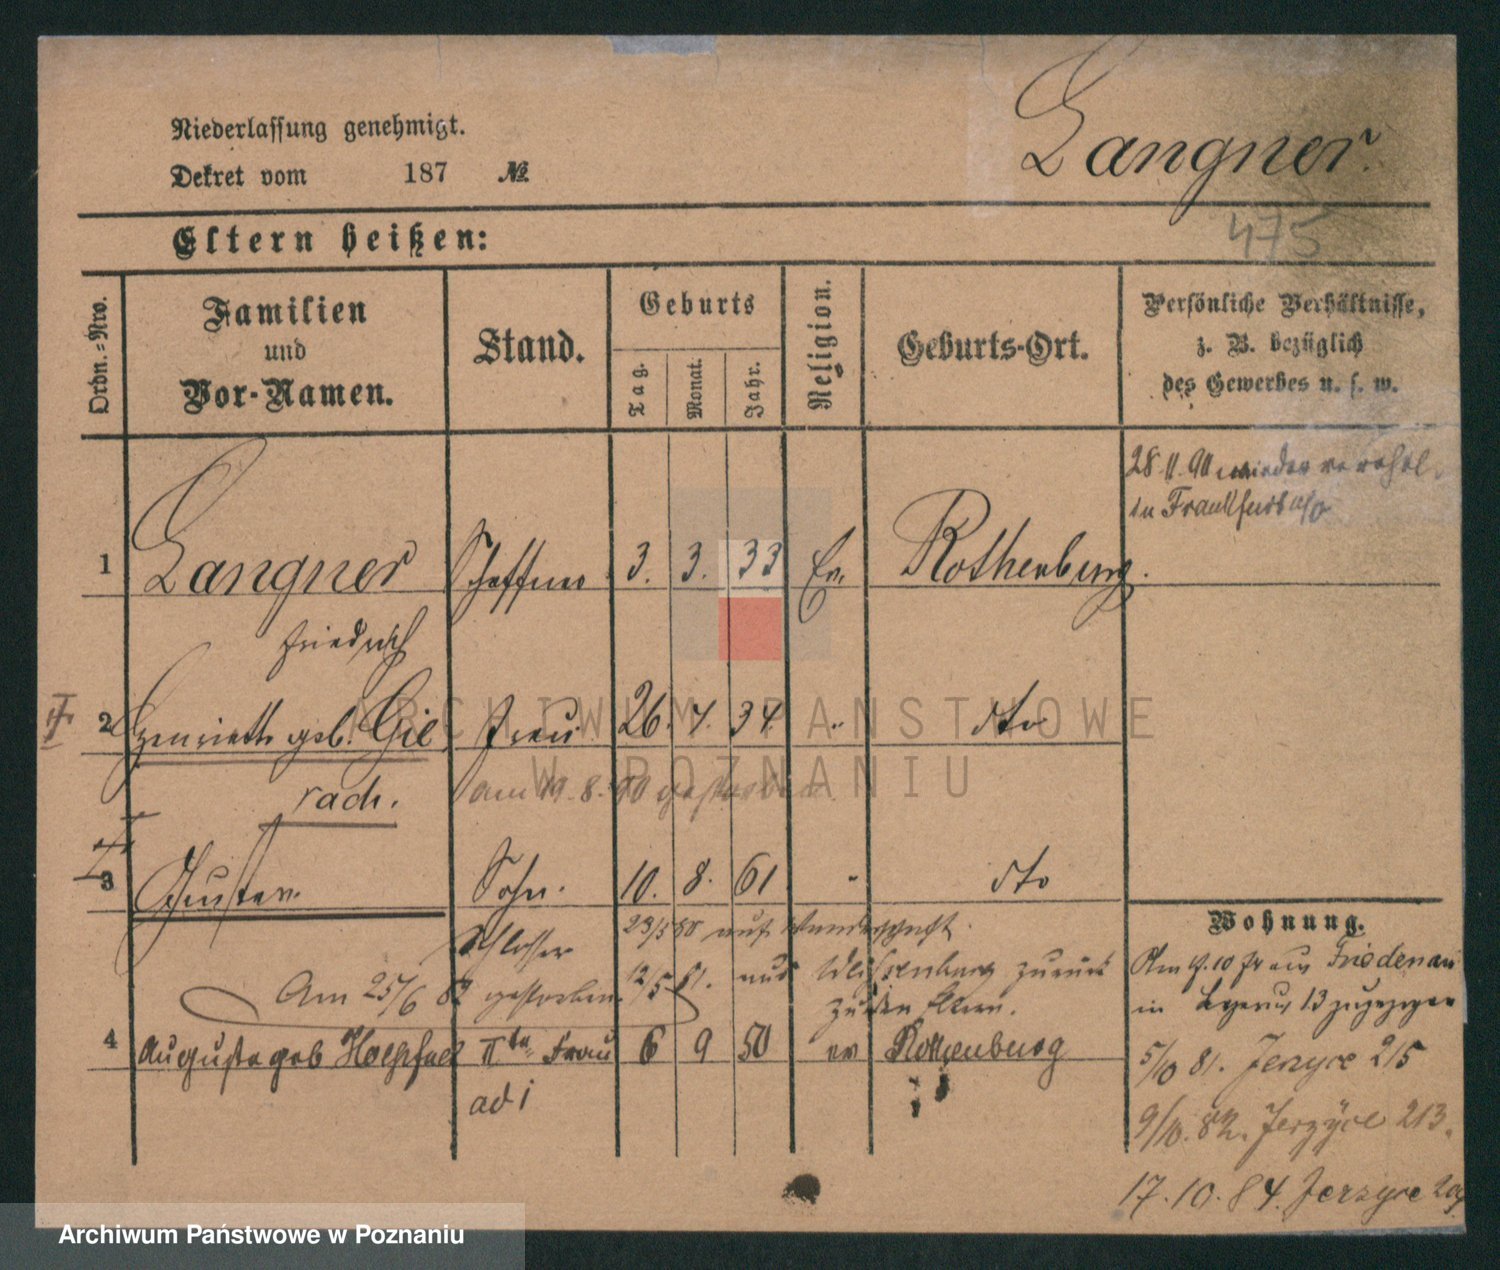 Niederlassung genehmigt.
Dekret vom 187 №
Langner.
475
Eltern heißen:
Ordn.-Nro.
Familien
und
Vor-Namen.
Stand.
Geburts
Tag.
Monat.
Jahr.
Religion.
Geburts-Ort.
Persönliche Verhältnisse,
z. B. bezüglich
des Gewerbes u. s. w.
28.11.90 wieder verehel.
in Frankfurt a/O
1 Langner Schaffner 3. 3. 33 Ev. Rothenburg.
Friedrich
2 Henriette geb. Gil Frau 26. 7. 34. " dto
rach. am 19.8.90 gestorben
3 Gustav. Sohn. 10. 8. 61 " dto
Schlosser 23/3 80 auf Wanderschaft.
12/5 81. aus zurück
Am 25/6 82 gestorben. zu den Eltern.
4 Auguste geb Hoepfner IIte Frau 6 9 50 ev Rothenburg
ad 1
Wohnung.
Am 9.10 Fr aus Friedenau
in 13 zugezogen
5/10 81. Jerzyce 215
9/10. 82. Jerzyce 213.
17.10.84. Jerzyce
ARCHIWUM PAŃSTWOWE
W POZNANIU
Archiwum Państwowe w Poznaniu